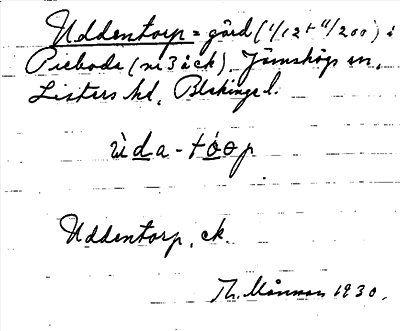 Uddentorp = gård (1/12 + 11/200) i
Pieboda (nr 3 åck) Jämshögs sn,
Listers hd, Blekinge l.
ùda-tóop
Uddentorp, ck.
Th. Månsson 1930.